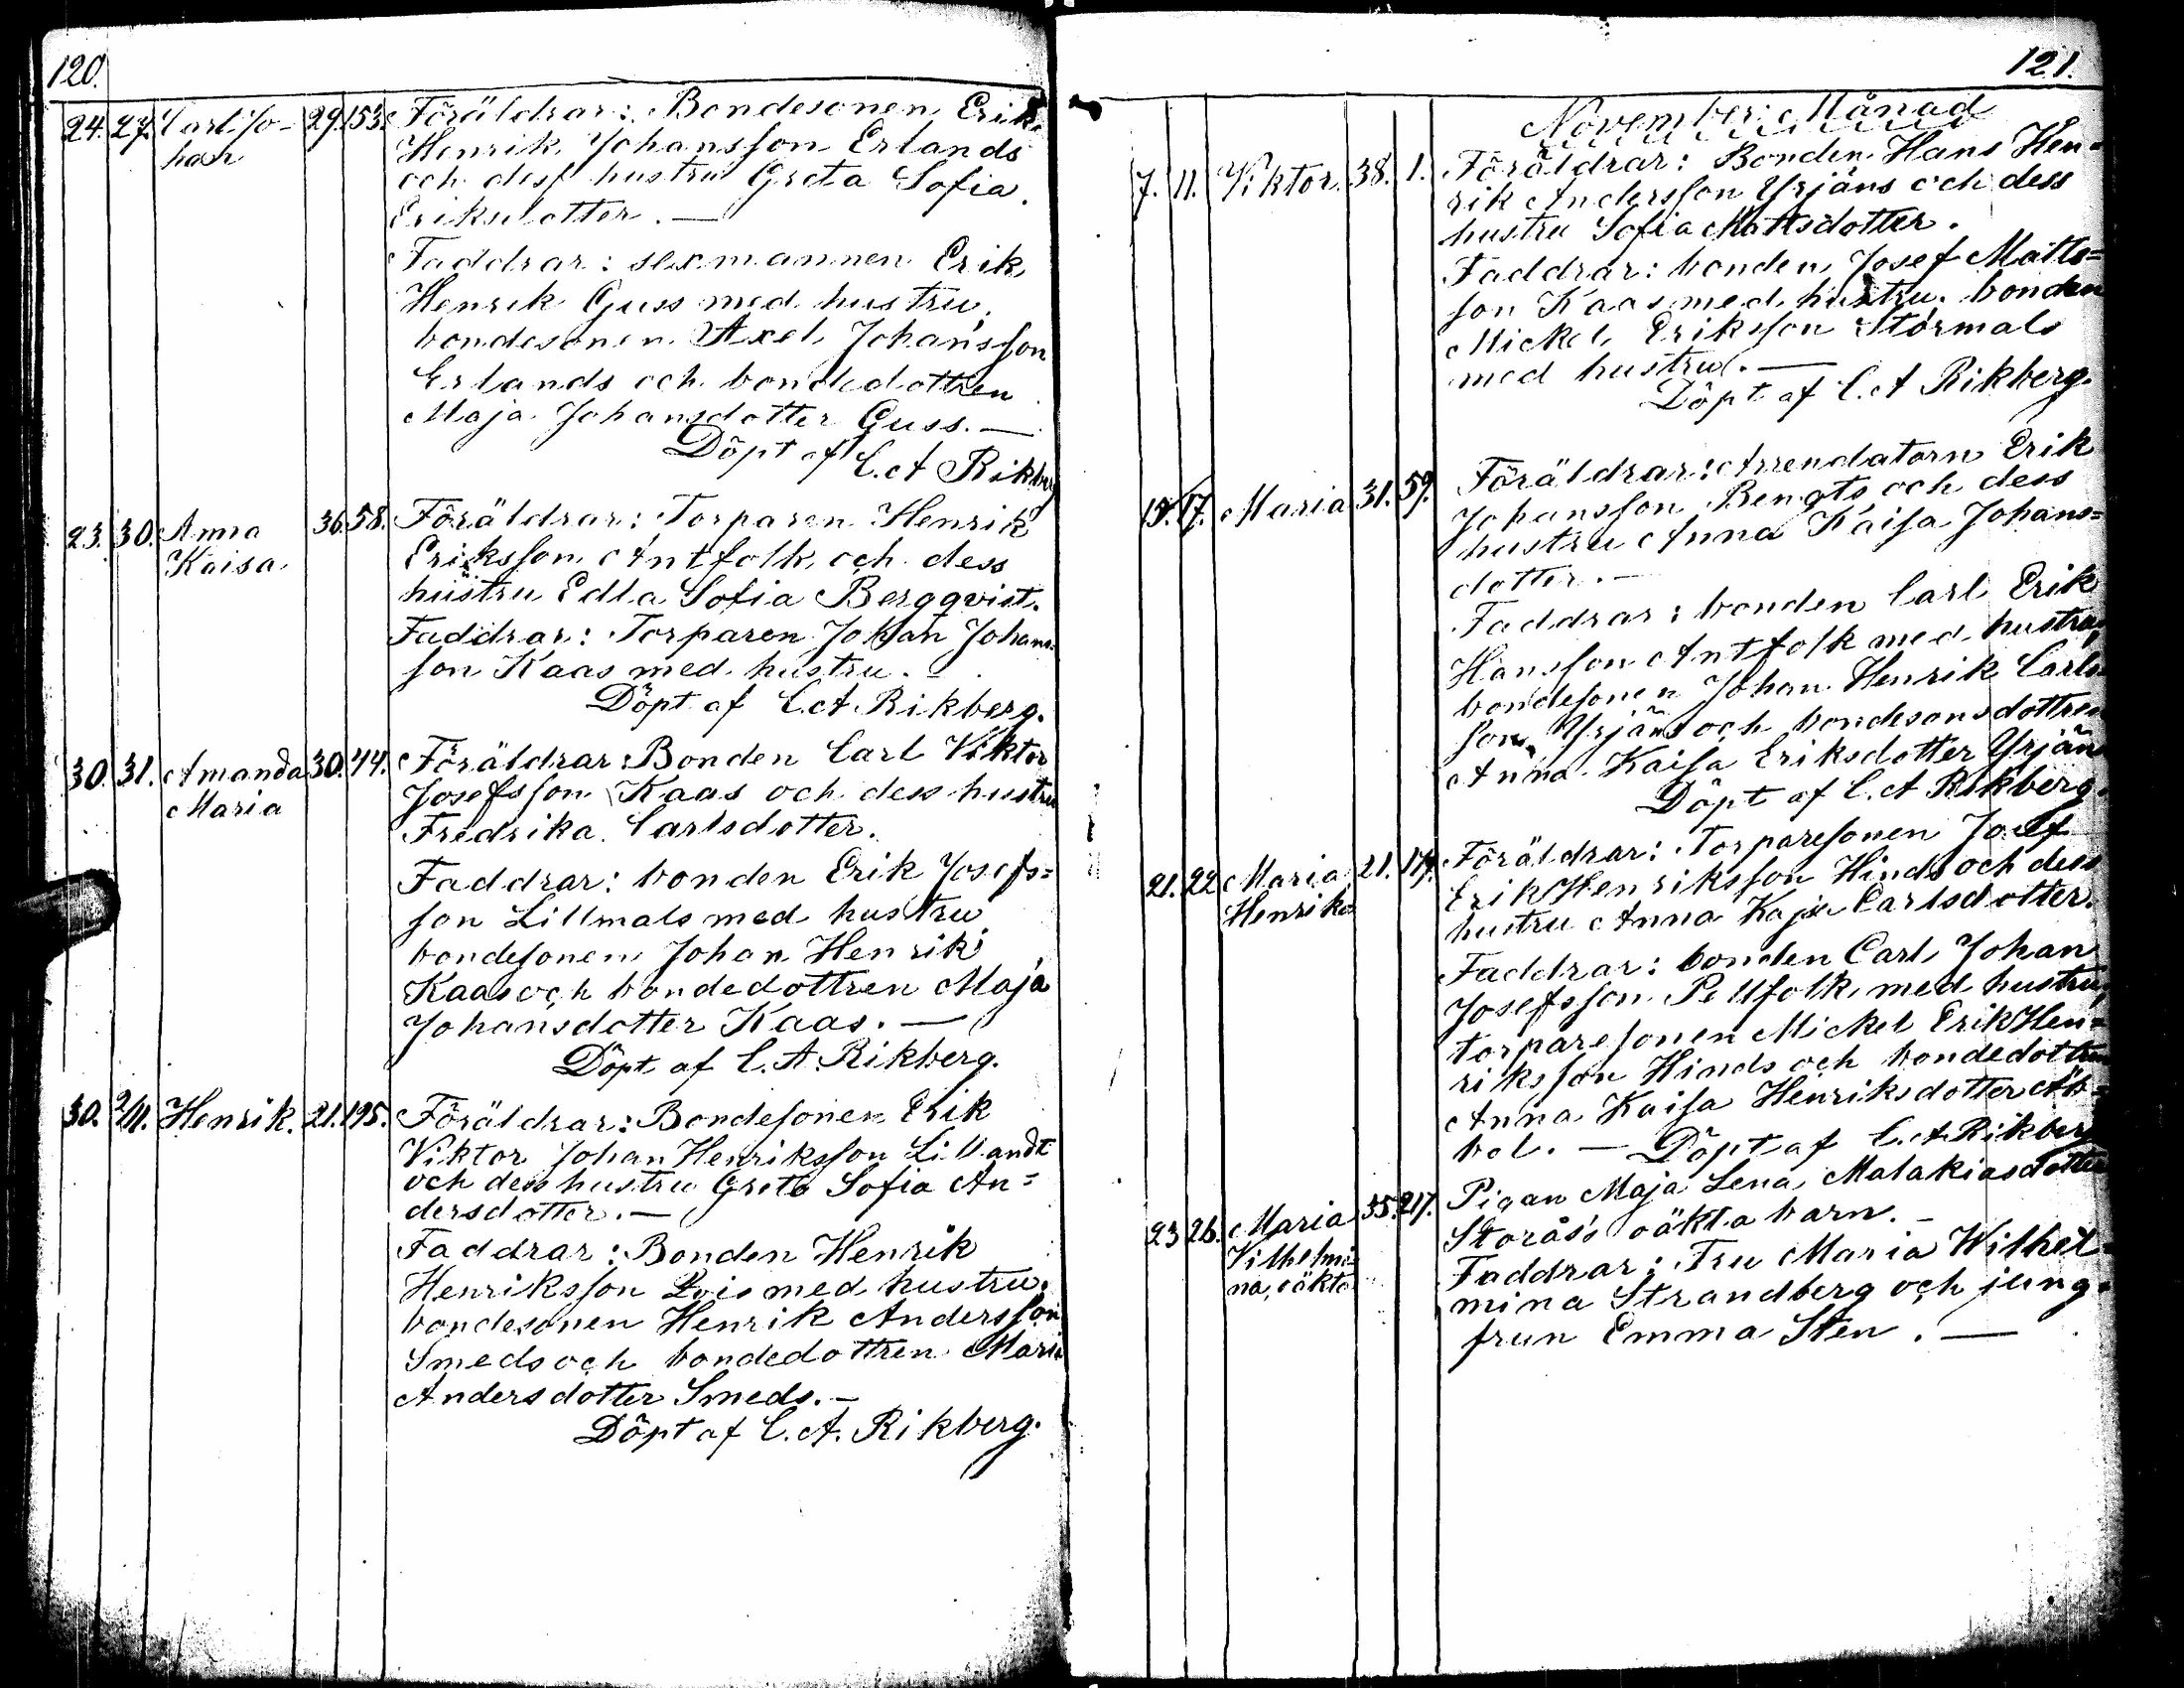 120.
24. 27. Carl Jo- 29. 153. Föräldrar: Bondesonen Erik
han Henrik Johansson Erlands
och dess hustru Greta Sofia
Eriksdotter. —
Faddrar: sexmannen Erik
Henrik Guss med hustru,
bondesonen Axel Johansson
Erlands och bondedottren
Maja Johansdotter Guss. —
Döpt af C. A Rikberg
23. 30. Anna 36. 58. Föräldrar: Torparen Henrik
Kaisa Eriksson Antfolk och dess
hustru Edla Sofia Bergqvist.
Faddrar: Torparen Johan Johans-
son Kaas med hustru. —
Döpt af C. A Rikberg.
30. 31. Amanda 30. 44. Föräldrar: Bonden Carl Viktor
Maria Josefsson Kaas och dess hustru
Fredrika Carlsdotter.
Faddrar: bonden Erik Josefs=
son Lillmals med hustru
bondesonen Johan Henrik
Kaas och bondedottren Maja
Johansdotter Kaas. —
Döpt af C. A. Rikberg.
30. 2/11. Henrik. 21. 195. Föräldrar: Bondesonen Erik
Viktor Johan Henriksson Lillandt
och dess hustru Greta Sofia An=
dersdotter. —
Faddrar: Bonden Henrik
Henriksson Lois med hustru,
bondesonen Henrik Andersson
Smeds och bondedottren Maria
Andersdotter Smeds. —
Döpt af C. A. Rikberg.
121.
November Månad
7. 11. Viktor. 38. 1. Föräldrar: Bonden Hans Hen=
rik Andersson Yrjäns och dess
hustru Sofia Mattsdotter.
Faddrar: bonden Josef Matts=
son Kaas med hustru, bonden
Mickel Eriksson Stormals
med hustru. —
Döpt af C. A Rikberg.
15. 17. Maria 31. 59. Föräldrar: Arrendatorn Erik
Johansson Bengts och dess
hustru Anna Kaisa Johans=
dotter. —
Faddrar: bonden Carl Erik
Hansson Antfolk med hustru,
bondesonen Johan Henrik Carls
son Yrjäns och bondesonsdottren
Anna Kaisa Eriksdotter Yrjäns
Döpt af C. A Rikberg.
21. 22 Maria 21. 174. Föräldrar: Torparesonen Josef
Henrika Erik Henriksson Hinds och dess
hustru Anna Kajsa Carlsdotter.
Faddrar: bonden Carl Johan
Josefsson Pellfolk med hustru,
torparesonen Mickel Erik Hen=
riksson Hinds och bondedottren
Anna Kaisa Henriksdotter Åb=
bol. — Döpt af C. A Rikberg
23 26. Maria 35. 217. Pigan Maja Lena Malakiasdotter
Vilhelmi- Storås's oäkta barn. —
na, oäkta Faddrar: Fru Maria Wilhel-
mina Strandberg och jung-
frun Emma Sten. —